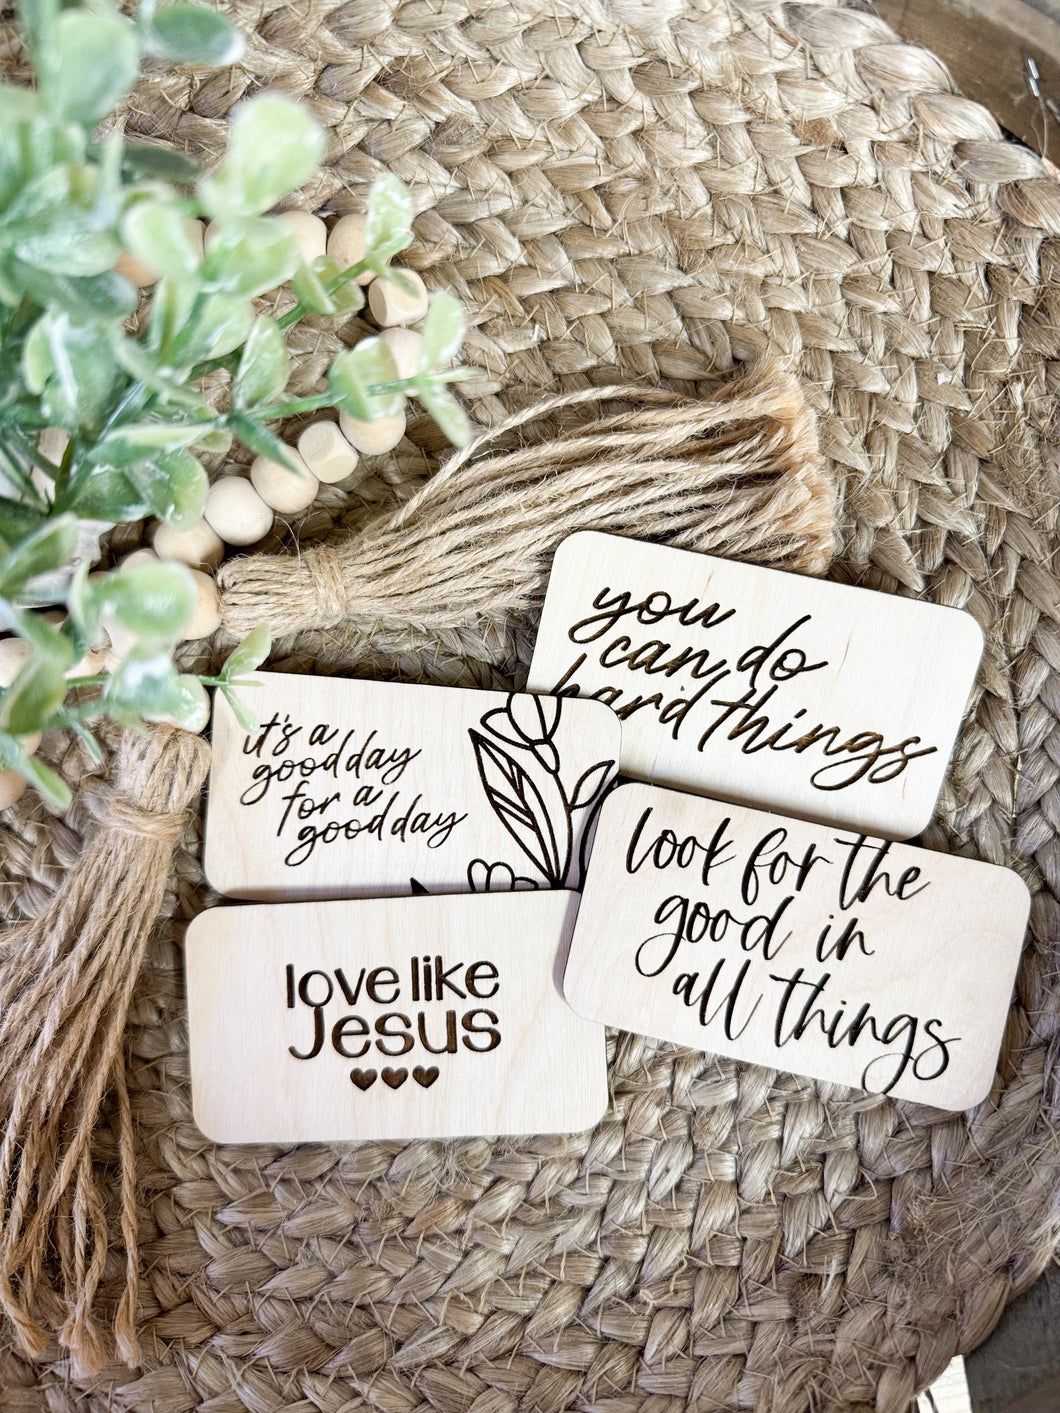 you
can do
hard things
it's a
good day
for a
good day
look for the
good in
all things
love like
Jesus